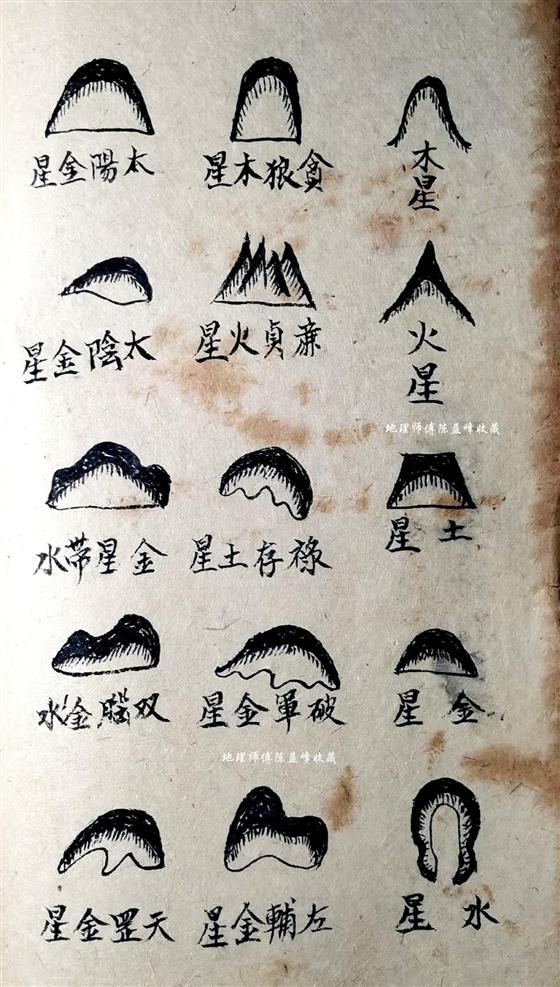 木星
貪狼木星
太陽金星
火星
廉貞火星
太陰金星
地理师傅陈益峰收藏
土星
祿存土星
金星帶水
金星
破軍金星
双腦金水
地理师傅陈益峰收藏
水星
左輔金星
天罡金星